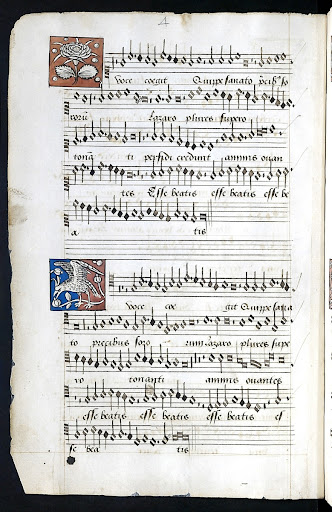 4
voce coegit Quippe sanato p̄cib⁹ so
rorū Lazaro plures supero
tonā ti perfidi credunt animis ouan
tes Esse beatis esse beatis esse be
a tis
voce coe git Quippe sana
to precibus soro rum Lazaro plures supe
ro tonanti animis ouantes
esse beatis esse beatis esse beatis es
se bea tis